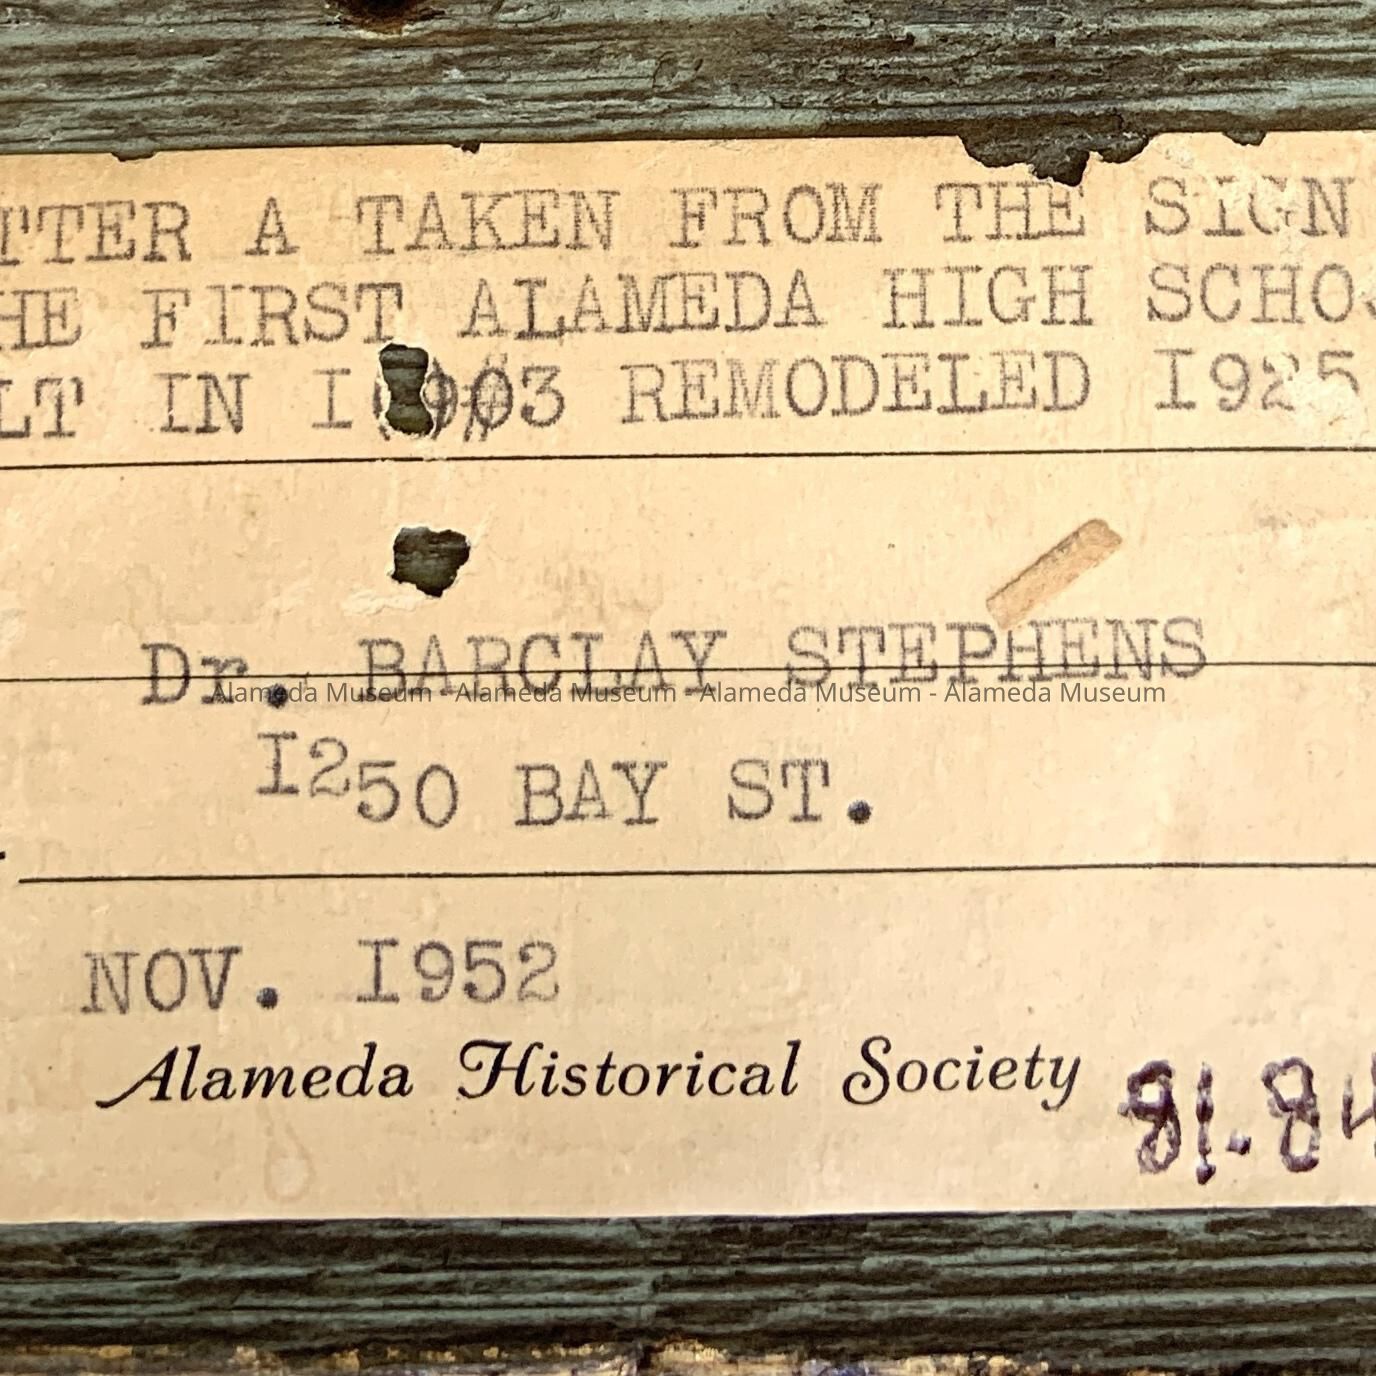 TTER A TAKEN FROM THE SIGN
HE FIRST ALAMEDA HIGH SCHO
LT IN REMODELED I925
Dr. BARCLAY STEPHENS
Alameda Museum - Alameda Museum - Alameda Museum - Alameda Museum
I250 BAY ST.
NOV. I952
Alameda Historical Society 81-84